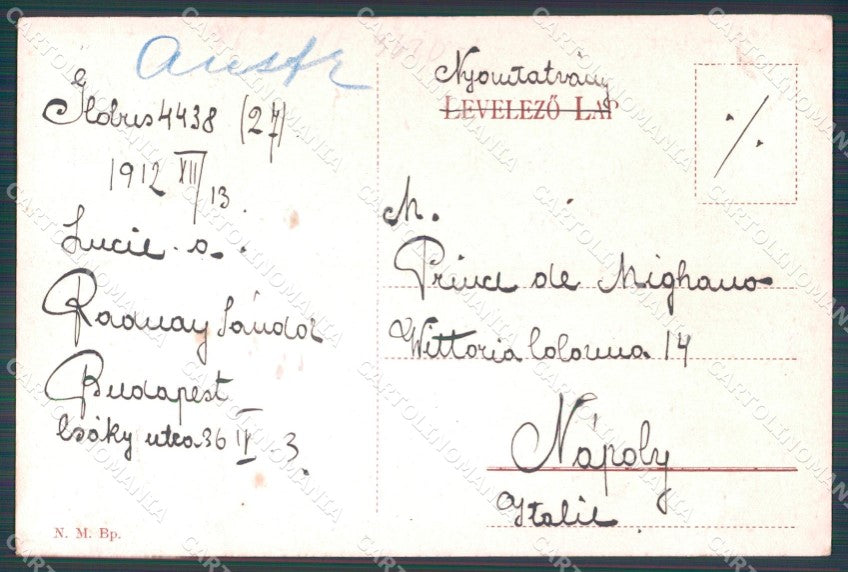 Austr
Globus 4438 (27)
1912 XII/13.
Lucie. o.
Radnay Sándor
Budapest
Csáky utca 36 II 3.
N. M. Bp.
Nyomtatvány
LEVELEZŐ LAP
M.
Prince de Mighano
Wittoria Colonna 14
Nápoly
Italie
CARTOLINOMANIA